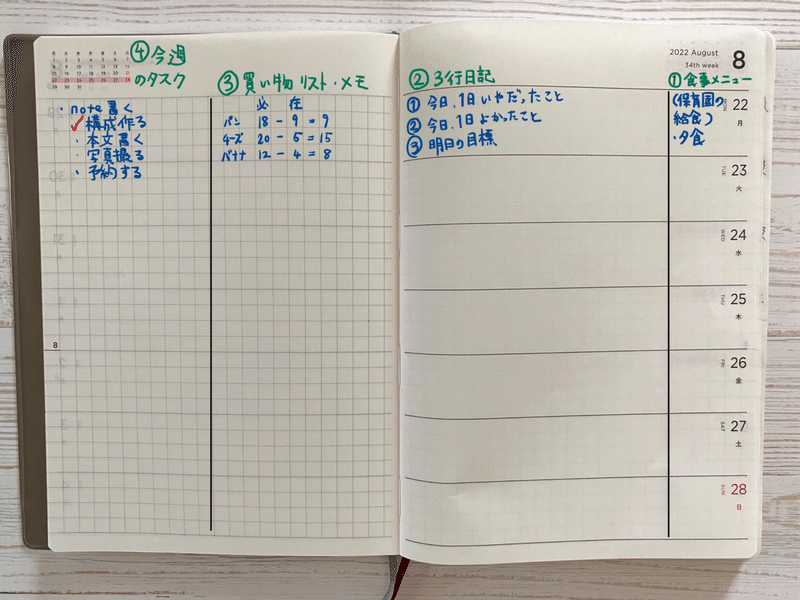 ④今週
のタスク
・note書く
✓構成作る
・本文書く
・写真撮る
・予約する
8
③買い物リスト・メモ
必 在
パン 18 - 9 = 9
チーズ 20 - 5 = 15
バナナ 12 - 4 = 8
②3行日記
①今日、1日いやだったこと
②今日、1日よかったこと
③明日の目標
2022 August
34th week
8
①食事メニュー
(保育園の
給食)
・夕食
MON 22 月
TUE 23 火
WED 24 水
THU 25 木
FRI 26 金
SAT 27 土
SUN 28 日